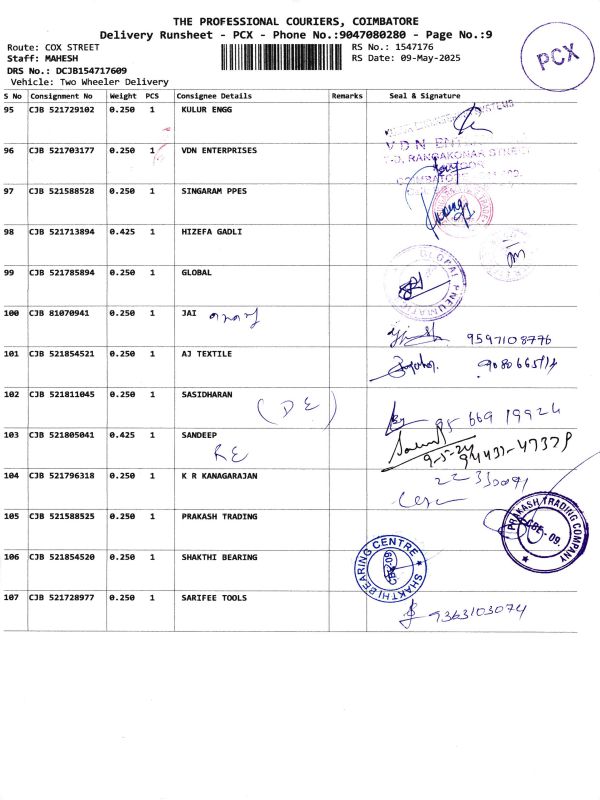 THE PROFESSIONAL COURIERS, COIMBATORE
Delivery Runsheet - PCX - Phone No.:9047080280 - Page No.:9
Route: COX STREET RS No.: 1547176
Staff: MAHESH RS Date: 09-May-2025
DRS No.: DCJB154717609
Vehicle: Two Wheeler Delivery
PCX
S No Consignment No Weight PCS Consignee Details Remarks Seal & Signature
95 CJB 521729102 0.250 1 KULUR ENGG
96 CJB 521703177 0.250 1 VDN ENTERPRISES
97 CJB 521588528 0.250 1 SINGARAM PPES
98 CJB 521713894 0.425 1 HIZEFA GADLI
99 CJB 521785894 0.250 1 GLOBAL
GLOBAL PNEUMATIC
100 CJB 81070941 0.250 1 JAI
9597108776
101 CJB 521854521 0.250 1 AJ TEXTILE
102 CJB 521811045 0.250 1 SASIDHARAN (DE)
95 669 19924
103 CJB 521805041 0.425 1 SANDEEP
RE
94437-47379
104 CJB 521796318 0.250 1 K R KANAGARAJAN
105 CJB 521588525 0.250 1 PRAKASH TRADING
PRAKASH TRADING COMPANY
CBE-09.
106 CJB 521854520 0.250 1 SHAKTHI BEARING
SHAKTHI BEARING CENTRE
107 CJB 521728977 0.250 1 SARIFEE TOOLS
9363103074